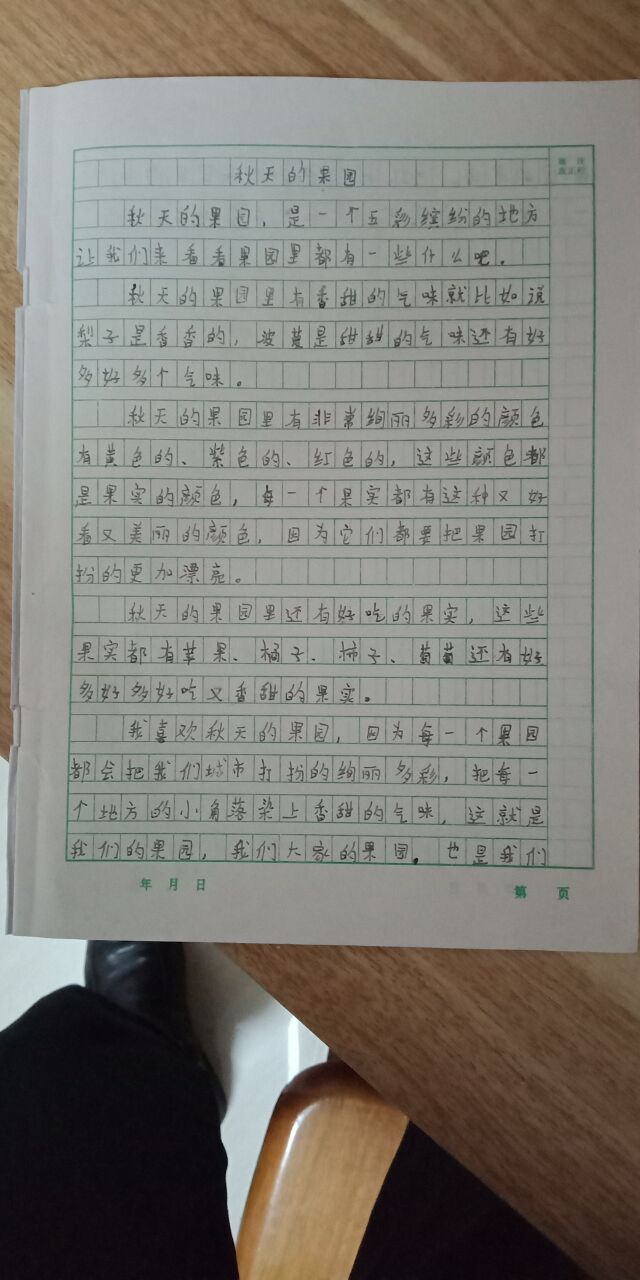 秋天的果园
秋天的果园，是一个五彩缤纷的地方
让我们来看看果园里都有一些什么吧。
秋天的果园里有香甜的气味就比如说
梨子是香香的，波萝是甜甜的气味还有好
多好多个气味。
秋天的果园里有非常绚丽多彩的颜色
有黄色的、紫色的、红色的，这些颜色都
是果实的颜色，每一个果实都有这种又好
看又美丽的颜色，因为它们都要把果园打
扮的更加漂亮。
秋天的果园里还有好吃的果实，这些
果实都有苹果、橘子、柿子、葡萄还有好
多好多好吃又香甜的果实。
我喜欢秋天的果园，因为每一个果园
都会把我们城市打扮的绚丽多彩，把每一
个地方的小角落染上香甜的气味，这就是
我们的果园，我们大家的果园。也是我们
年 月 日
第 页